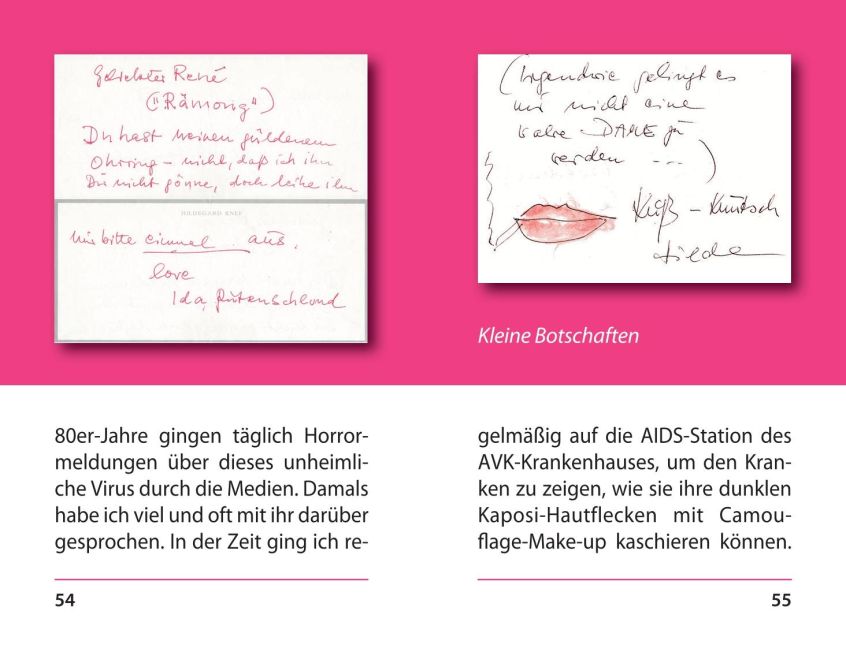 Geliebter René
("Rämong")
Du hast meinen güldenen
Ohrring – nicht, daß ich ihn
Du nicht gönne, doch leihe ihn
HILDEGARD KNEF
mir bitte einmal aus.
love
Ida,
(Irgendwie gelingt es
mir nicht eine
wahre DAME zu
werden ---)
Kuß – Knutsch
Kleine Botschaften
80er-Jahre gingen täglich Horror-
meldungen über dieses unheimli-
che Virus durch die Medien. Damals
habe ich viel und oft mit ihr darüber
gesprochen. In der Zeit ging ich re-
54
gelmäßig auf die AIDS-Station des
AVK-Krankenhauses, um den Kran-
ken zu zeigen, wie sie ihre dunklen
Kaposi-Hautflecken mit Camou-
flage-Make-up kaschieren können.
55